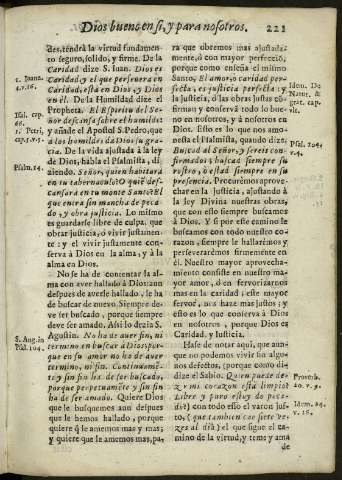 Dios bueno en sí, y para nosotros. 221
des, tendrà la virtud fundamen-
to seguro, solido, y firme. De la
Caridad dize S. Iuan. Dios es
Caridad, y el que persevera en
Caridad, está en Dios, y Dios
en él. De la Humildad dize el
Propheta. El Espiritu del Se-
ñor descansa sobre el humilde:
y añade el Apostol S. Pedro, que
a los humildes dà Dios su gra-
cia. De la vida ajustada à la ley
de Dios, habla el Psalmista, di-
ziendo. Señor, quien habitarà
en tu tabernaculo? O què des-
cansarà en tu monte Santo? El
que entra sin mancha de peca-
do, y obra justicia. Lo mismo
es guardarse libre de culpa, que
obrar justicia, ò vivir justamen-
te: y el vivir justamente con-
serva à Dios en la alma, y à la
alma en Dios.
No se ha de contentar la al-
ma con aver hallado à Dios: aun
despues de averle hallado, le ha
de buscar de nuevo. Siempre de-
ve ser buscado, porque siempre
deve ser amado. Assi lo dezia S.
Agustin. No ha de aver fin, ni
termino en buscar à Dios: por-
que en su amor no ha de aver
termino, ni fin. Continuamẽ-
te y sin fin ha de ser buscado,
porque perpetuamẽte y sin fin
ha de ser amado. Quiere Dios
que le busquemos aun despues
que le hemos hallado, porque
quiere q̃ le amemos mas y mas;
y quiere que le amemos mas, pa-
1. Ioann.
4. v. 16.
Isai. cap.
66.
1. Petri,
cap. 5. v. 5.
Psalm. 14.
S. Aug. in
Psal. 104.
ra que obremos mas ajustada-
mente, ò con mayor perfecciõ,
porque como enseña el mismo
Santo, El amor, ò caridad per-
fecta, es justicia perfecta: y
la justicia, ò las obras justas co
firman y conservã todo lo bue-
no en nosotros, y à nosotros en
Dios. Esto es lo que nos amo-
nesta el Psalmista, quando dize:
Buscad al Señor, y sereis con-
firmados; buscad siempre su
rostro, ò estad siempre en su
presencia. Procurèmos aprove-
char en la justicia, ajustando à
la ley Divina nuestras obras,
que con esso siempre buscamos
à Dios. Y si por este camino le
buscamos con todo nuestro co-
razon, siempre le hallarèmos y
perseverarèmos firmemente en
él. Nuestro mayor aprovecha-
miento consiste en nuestro ma-
yor amor, ò en fervorizarnos
mas en la caridad: este mayor
fervor, nos haze mas justos; y
esto es lo que conserva à Dios
en nosotros, porque Dios es
Caridad, y Iusticia.
Hase de notar aqui, que aun-
que no podemos vivir sin algu-
nos defectos, (porque como di-
ze el Sabio. Quien puede de-
zir mi corazon està limpio?
Libre y puro estoy de peca-
do?) con todo esso el varon jus-
to, (que tambien cae siete ve-
zes al dia) el que sigue el ca-
mino de la virtud, y teme y ama
de
Idem. De
Natur. &
grat. cap.
vlt.
Psal. 104.
v. 4.
Proverb.
20. v. 9.
Idem. 24.
v. 16.